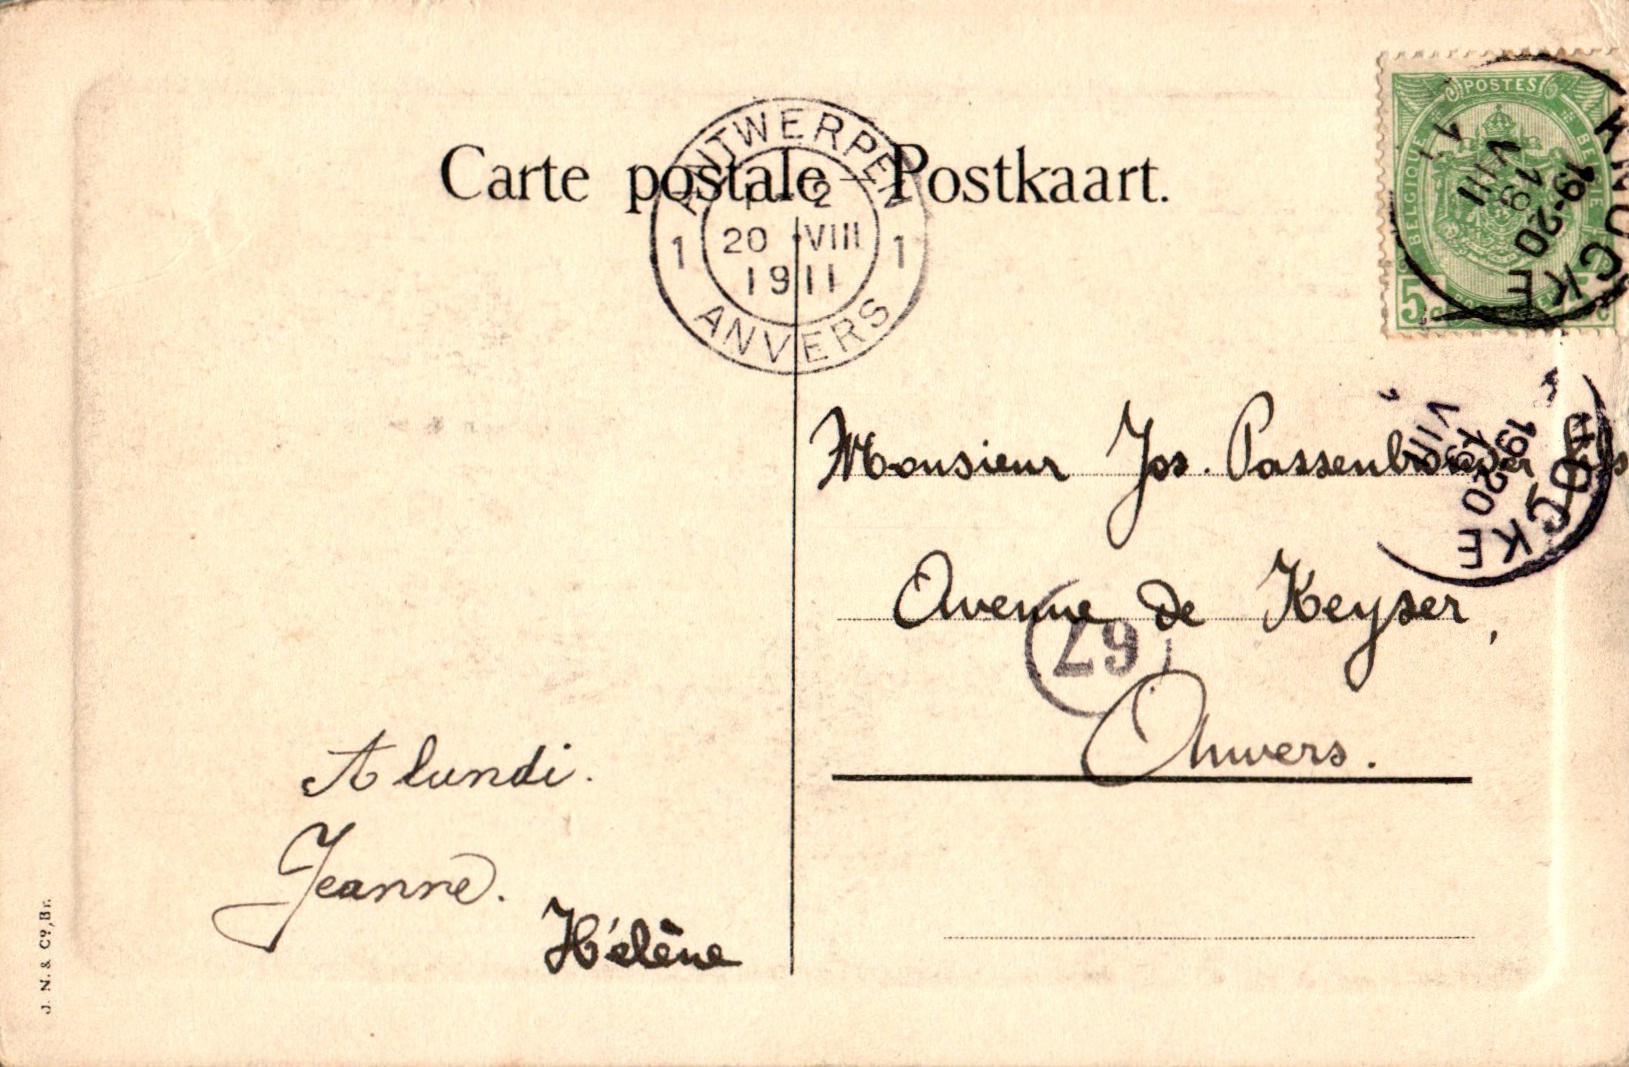 Carte postale – Postkaart.
ANTWERPEN
1 - 2
1 20 VIII 1
1911
ANVERS
POSTES
BELGIQUE
BELGIE
5c
KNOCKE
19-20
19
VIII
11
KNOCKE
19-20
19
VIII
Monsieur Jos. Passenbronder
Avenue de Keyser,
67
Anvers.
A lundi.
Jeanne.
Hélène
J. N. & Co, Br.